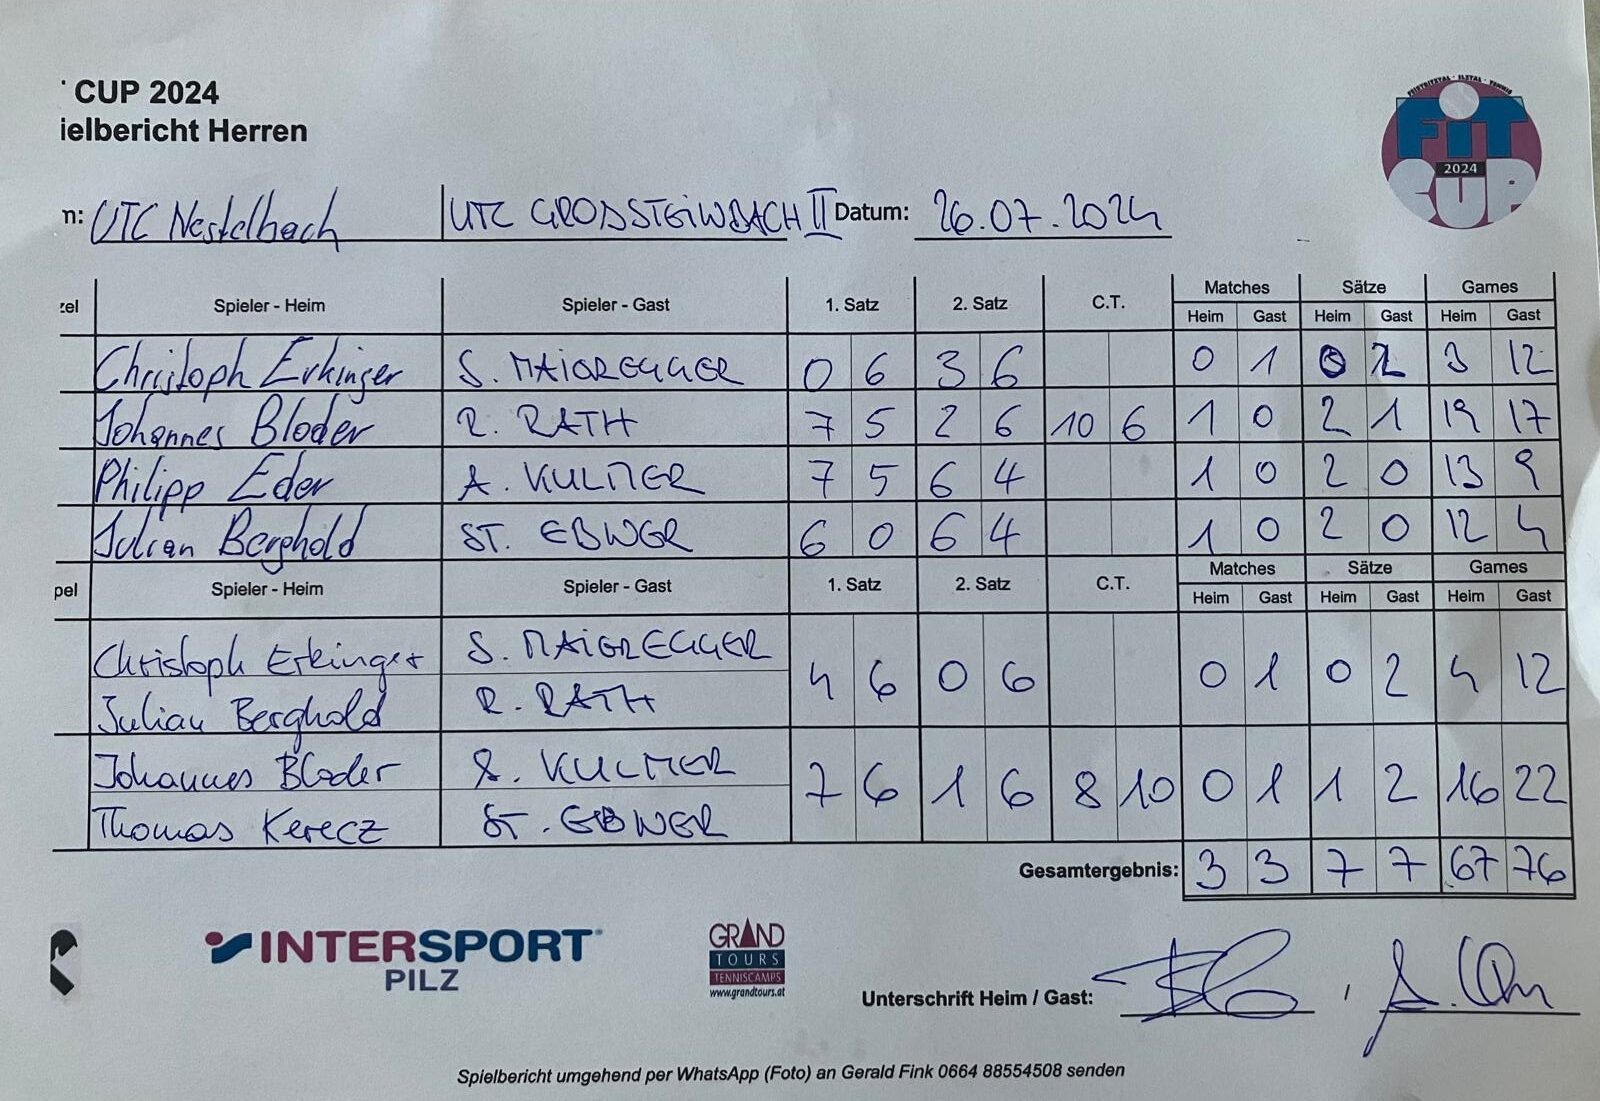 CUP 2024
ielbericht Herren
FEISTRITZTAL - ILZTAL - TENNIS
FIT
2024
CUP
n: UTC Nestelbach UTC GROSSTEINBACH II Datum: 26.07.2024
zel Spieler - Heim Spieler - Gast 1. Satz 2. Satz C.T. Matches Sätze Games
Heim Gast Heim Gast Heim Gast
Christoph Erkinger S. MAIEREGGER 0 6 3 6 0 1 0 2 3 12
Johannes Bloder R. RATH 7 5 2 6 10 6 1 0 2 1 19 17
Philipp Eder A. KULMER 7 5 6 4 1 0 2 0 13 9
Julian Berghold ST. EBNER 6 0 6 4 1 0 2 0 12 4
pel Spieler - Heim Spieler - Gast 1. Satz 2. Satz C.T. Matches Sätze Games
Heim Gast Heim Gast Heim Gast
Christoph Erkinger S. MAIEREGGER
4 6 0 6 0 1 0 2 4 12
Julian Berghold R. RATH
Johannes Bloder KULMER
7 6 1 6 8 10 0 1 1 2 16 22
Thomas Kerecz ST. EBNER
Gesamtergebnis: 3 3 7 7 67 76
INTERSPORT
PILZ
GRAND
TOURS
TENNISCAMPS
www.grandtours.at
Unterschrift Heim / Gast: /
Spielbericht umgehend per WhatsApp (Foto) an Gerald Fink 0664 88554508 senden